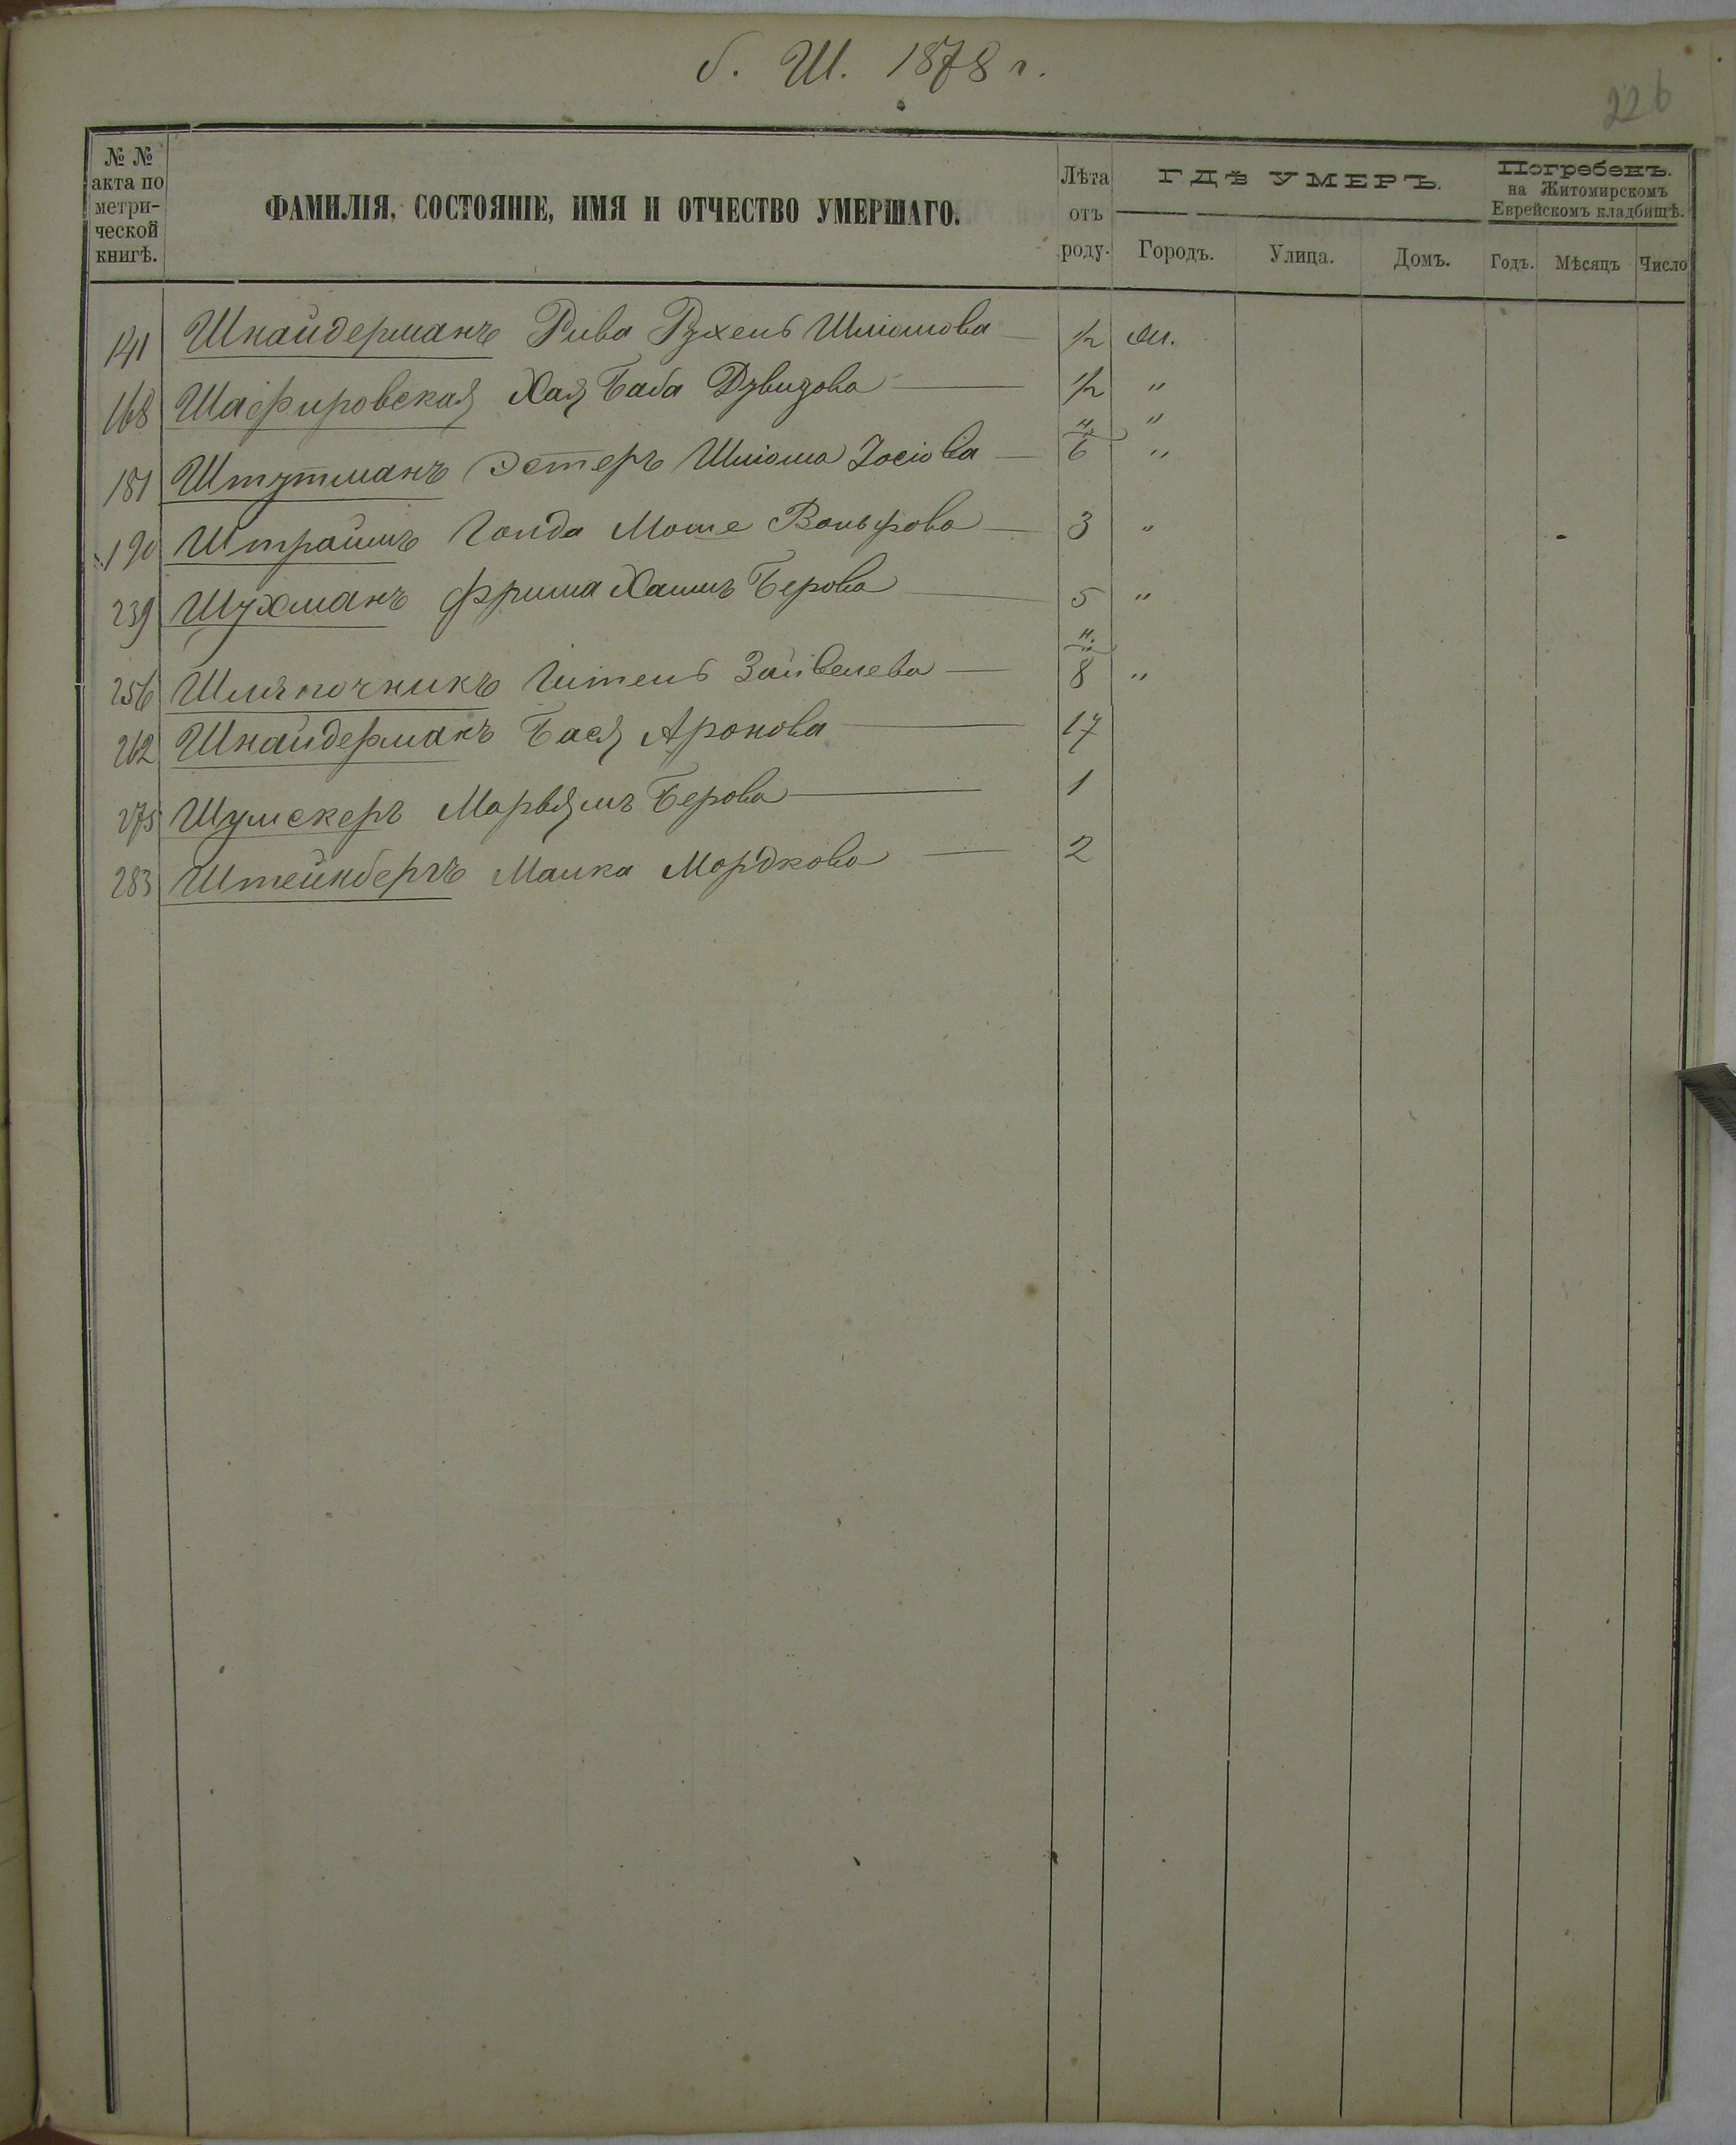 б. Ш. 1878 г.
226
№ № акта по метри-ческой книгѣ.
ФАМИЛІЯ, СОСТОЯНІЕ, ИМЯ И ОТЧЕСТВО УМЕРШАГО.
Лѣта отъ роду.
ГДѢ УМЕРЪ.
Городъ. Улица. Домъ.
Погребенъ. на Житомирскомъ Еврейскомъ кладбищѣ.
Годъ. Мѣсяцъ Число
141 Шнайдерманъ Рива Рухель Шліомова
168 Шафировская Хая Баба Дувидова "
181 Штутманъ Эстеръ Шліома Іосіова 6 "
190 Штраймъ Голда Моше Вольфова 3 "
239 Шухманъ Фрима Хаимъ Берова 5 "
256 Шляпочникъ Гитель Зайвелева 8 "
262 Шнайдерманъ Бася Аронова 17
275 Шумскеръ Марьямъ Берова 1
283 Штейнбергъ Малка Мордкова 2